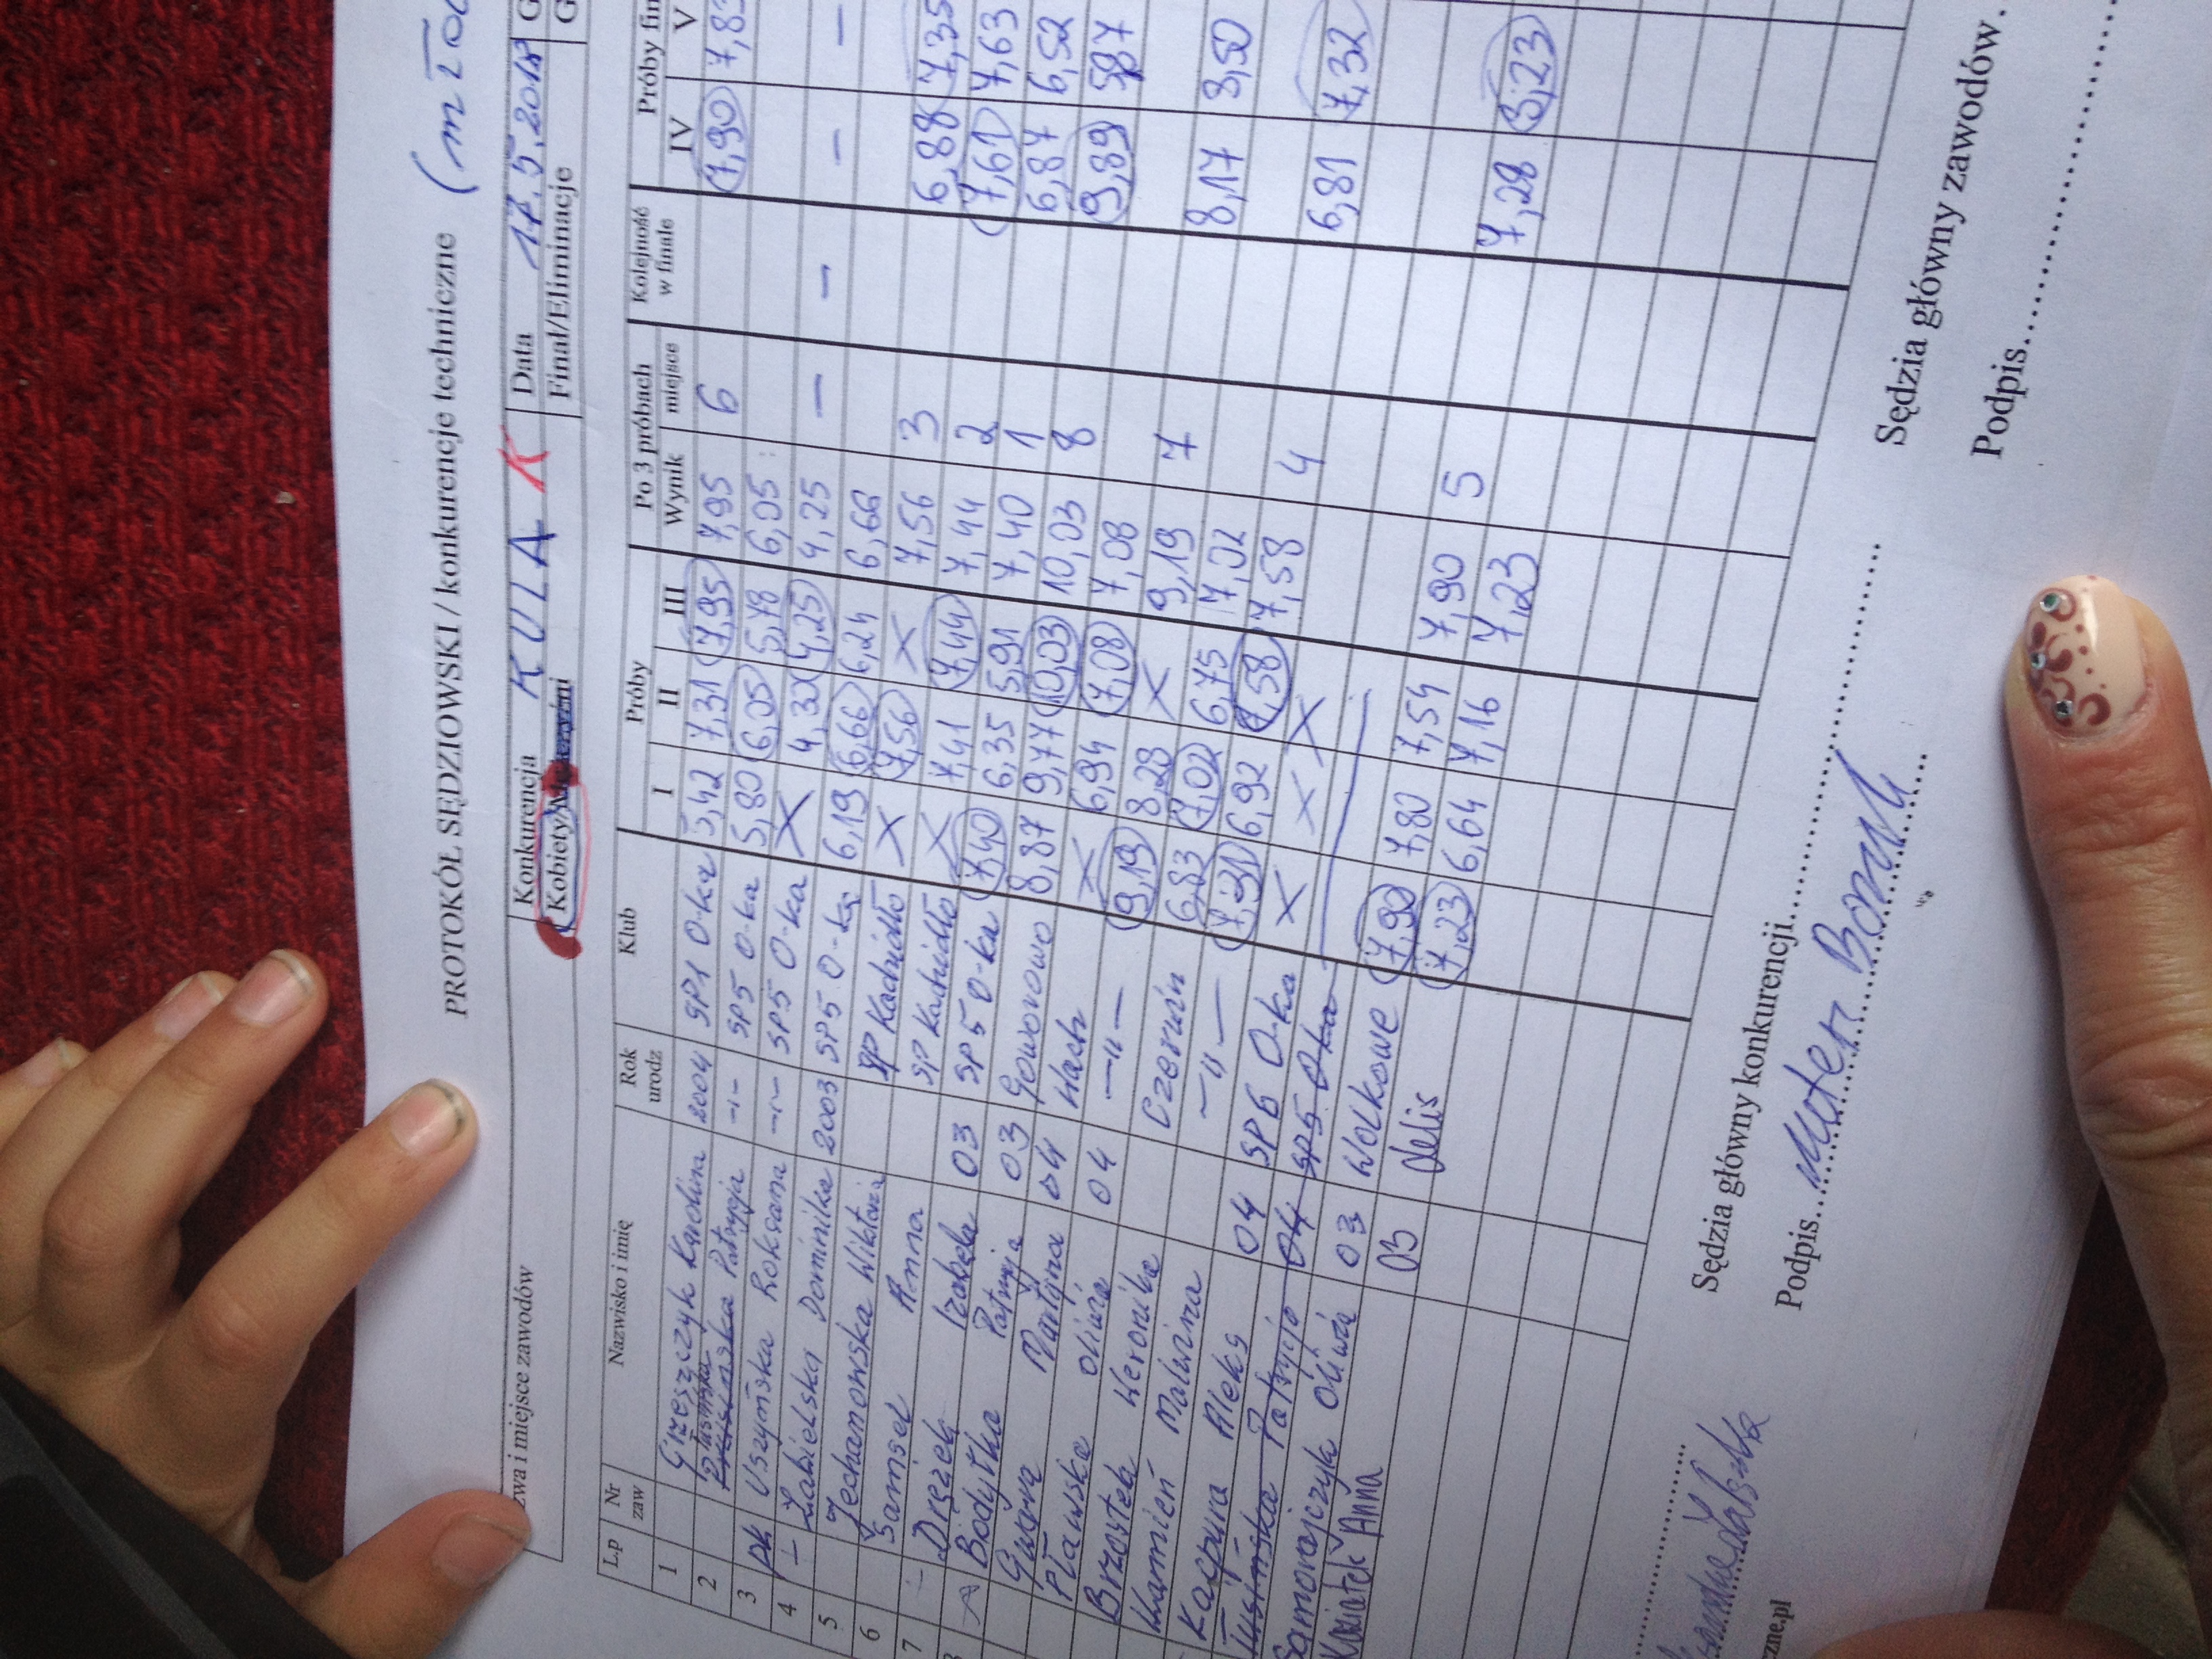 PROTOKÓŁ SĘDZIOWSKI / konkurencje techniczne
zwa i miejsce zawodów Konkurencja KULA K Data 17.5.2018
Kobiety/ Finał/Eliminacje
L.p Nr zaw Nazwisko i imię Rok urodz Klub Próby Po 3 próbach Kolejność w finale Próby fin
I II III Wynik miejsce IV V
1 Grzeszczyk Karolina 2004 SP1 O-ka 5,42 7,31 7,95 7,95 6 7,90
2 Patrycja -"- SP5 O-ka 5,80 6,05 5,78 6,05
3 pk Uszyńska Roksana -"- SP5 O-ka X 4,30 4,25 4,25 – – – –
4 – Zabielska Dominika 2003 SP5 O-ka 6,19 6,66 6,24 6,66
5 Jechanowska Wiktoria SP Kadzidło X 7,56 X 7,56 3 6,88 7,35
6 Samsel Anna SP Kadzidło X 7,41 7,44 7,44 2 7,61 7,63
7 – Drężek Izabela 03 SP5 O-ka 7,40 6,35 5,91 7,40 1 6,87 6,52
Bodytko Patrycja 03 Goworowo 8,87 9,77 10,03 10,03 8 9,89 5,87
Martyna 04 Wach X 6,94 7,08 7,08
Pławska Oliwia 04 -"- 9,19 8,29 X 9,19 7 8,17 8,50
Brzostek Weronika Czerwin 6,83 7,02 6,75 7,02
Kamień Malwina -"- 7,31 6,92 7,58 7,58 4 6,81 7,32
Kacpura Aleks 04 SP6 O-ka X X X
Tusińska Patrycja 04 SP5 O-ka
Samorajczyk Oliwia 03 Wolkowe 7,90 7,80 7,54 7,90 5 7,28 8,23
Koziatek Anna 03 Lelis 7,23 6,64 7,16 7,23
Sędzia główny konkurencji
Podpis
Sędzia główny zawodów
Podpis
zne.pl